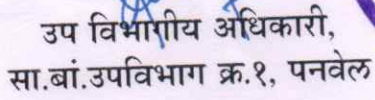 उप विभागीय अधिकारी,
सा.बां.उपविभाग क्र.१, पनवेल